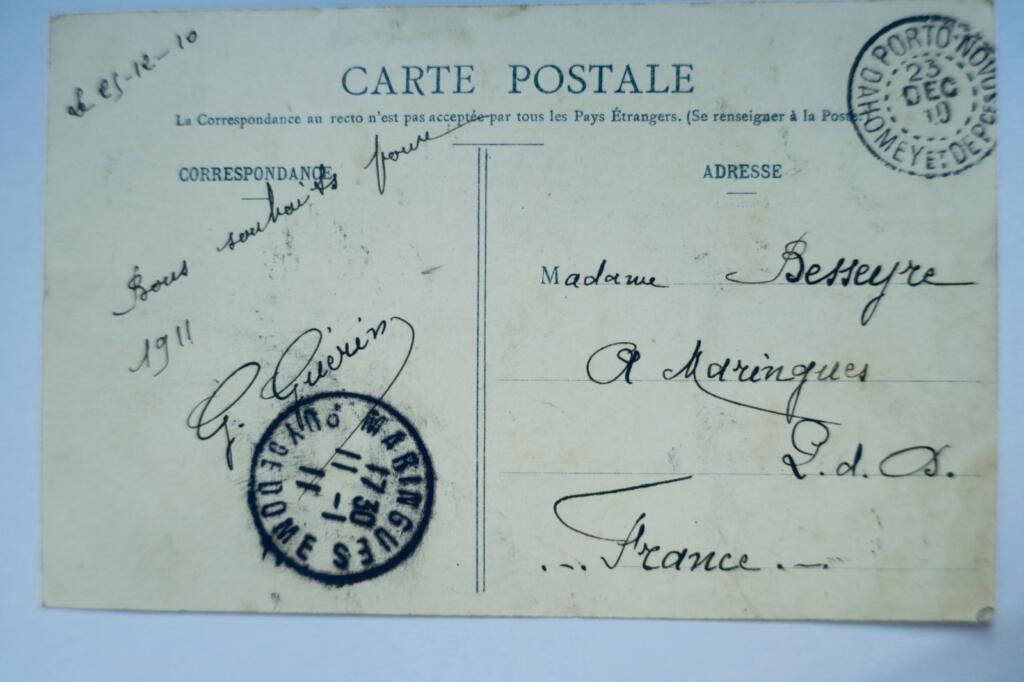 le 25-12-10
CARTE POSTALE
La Correspondance au recto n'est pas acceptée par tous les Pays Étrangers. (Se renseigner à la Poste.)
CORRESPONDANCE
Bons souhaits pour
1911
G. Guérin
ADRESSE
Madame Besseyre
A Maringues
P. d. D.
France
PORTO-NOVO
23
DEC
10
DAHOMEY ET DEPces
MARINGUES
17 30
11 -1
11
PUY DE DOME